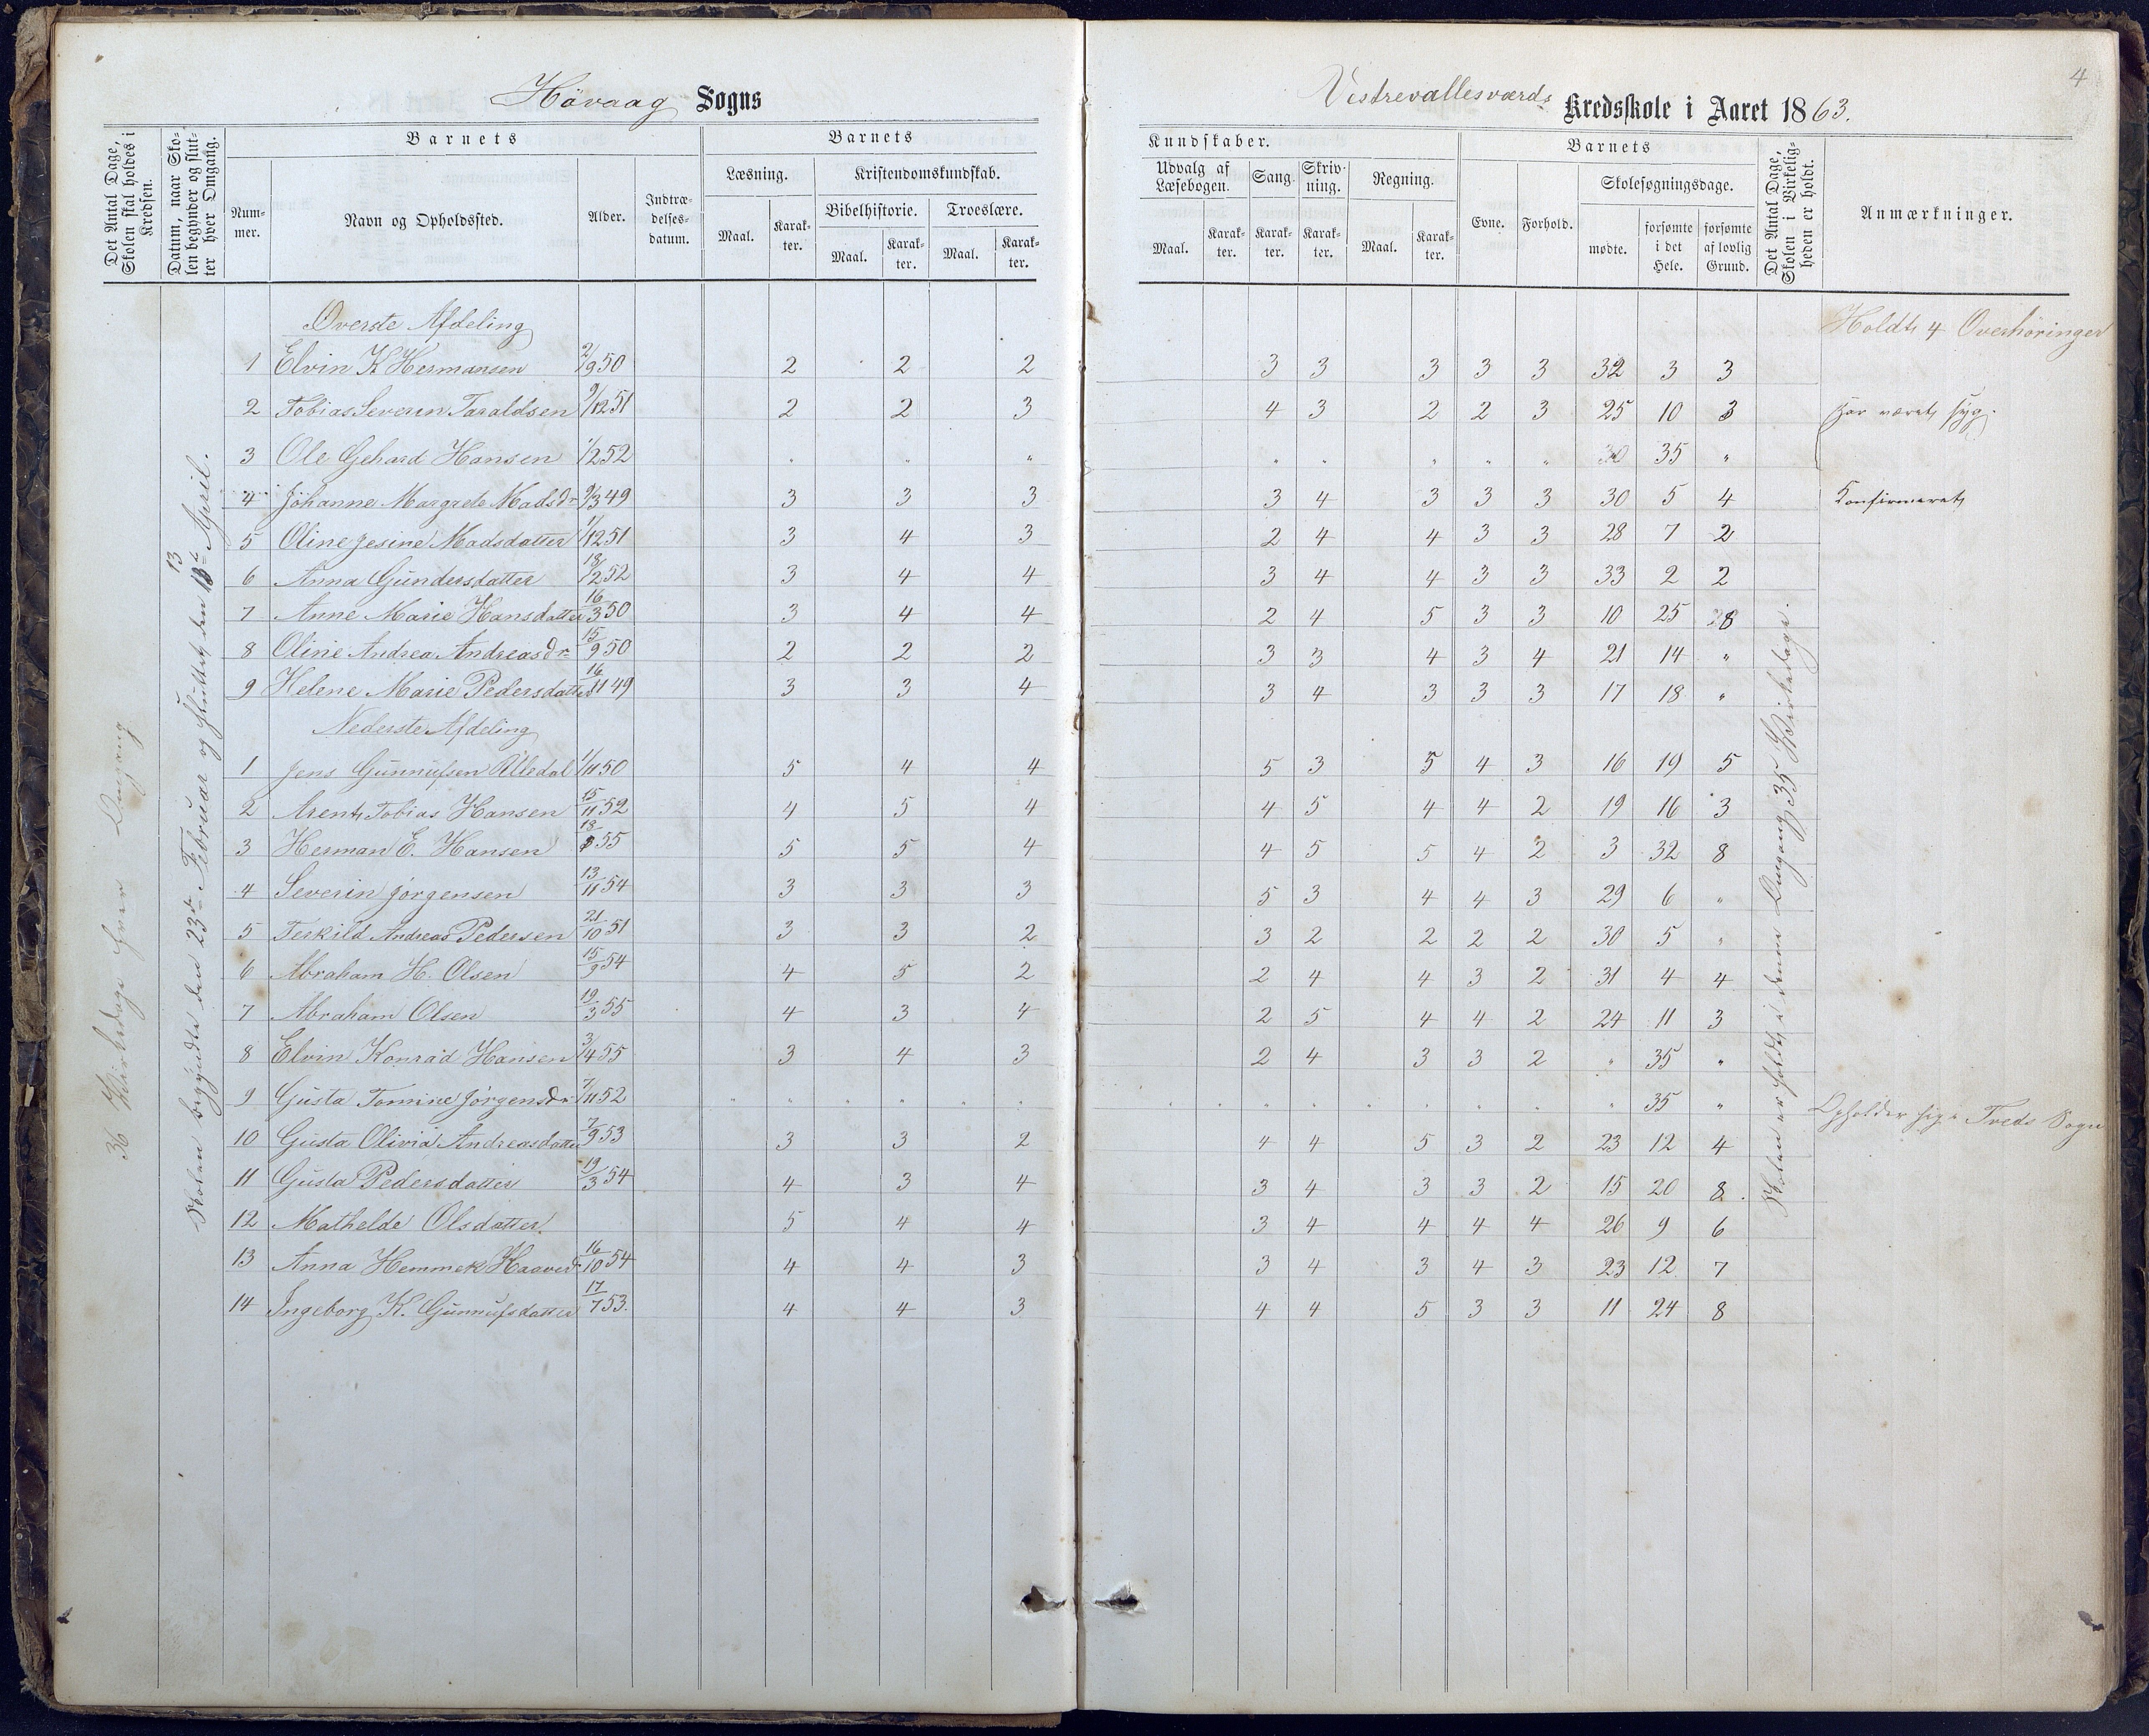 4
Hövaag Sogns
Vestrevallesværds Kredsskole i Aaret 1863.
Det Antal Dage, Skolen skal holdes i Kredsen.
Datum, naar Skolen begynder og slutter hver Omgang.
Barnets
Nummer.
Navn og Opholdssted.
Alder.
Indtrædelsesdatum.
Barnets
Læsning.
Maal.
Karakter.
Kristendomskundskab.
Bibelhistorie.
Maal.
Karakter.
Troeslære.
Maal.
Karakter.
Kundskaber.
Udvalg af Læsebogen.
Maal.
Karakter.
Sang.
Karakter.
Skrivning.
Karakter.
Regning.
Maal.
Karakter.
Barnets
Evne.
Forhold.
Skolesøgningsdage.
mødte.
forsømte i det Hele.
forsømte af lovlig Grund.
Det Antal Dage, Skolen i Virkeligheden er holdt.
Anmærkninger.
36 Virkedage hver Omgang
Skolen begyndte den 23de Februar og sluttet den 13de April.
13
Skolen er holdt i denne Omgang 35 Virkedage.
Øverste Afdeling
Holdt 4 Overhøringer
1 Elvin K Hermansen 2/9 50 2 2 2 3 3 3 3 3 32 3 3
2 Tobias Severin Taraldsen 9/12 51 2 2 3 4 3 2 2 3 25 10 3 har været syg.
3 Ole Gehard Hansen 1/2 52 " " " " " " " " 35 "
4 Johanne Margrete Madsdr 9/3 49 3 3 3 3 4 3 3 3 30 5 4 Konfirmeret
5 Oline Jesine Madsdatter 1/12 51 3 4 3 2 4 4 3 3 28 7 2
6 Anna Gundersdatter 18/2 52 3 4 4 3 4 4 3 3 33 2 2
7 Anne Marie Hansdatter 16/3 50 3 4 4 2 4 5 3 3 10 25 8
8 Oline Andrea Andreasdr 15/9 50 2 2 2 3 3 4 3 4 21 14 "
9 Helene Marie Pedersdatter 16/11 49 3 3 4 3 4 3 3 3 17 18 "
Nederste Afdeling
1 Jens Gunnufsen Ulledal 1/11 50 5 4 4 5 3 5 4 3 16 19 5
2 Arent Tobias Hansen 15/11 52 4 5 4 4 5 4 4 2 19 16 3
3 Herman E. Hansen 18/8 55 5 5 4 4 5 5 4 2 3 32 8
4 Severin Jørgensen 13/11 54 3 3 3 5 3 4 4 3 29 6 "
5 Terkild Andreas Pedersen 21/10 51 3 3 2 3 2 2 2 2 30 5 "
6 Abraham H. Olsen 15/9 54 4 5 2 2 4 4 3 2 31 4 4
7 Abraham Olsen 19/3 55 4 3 4 2 5 4 4 2 24 11 3
8 Elvin Konrad Hansen 3/4 55 3 4 3 2 4 3 3 2 " 35 "
9 Gusta Tomine Jørgensdr 7/11 52 " " " " " " " " " " " " " " 35 " Opholder sig i Tveds Sogn
10 Gusta Olivia Andreasdatter 7/9 53 3 3 2 4 4 5 3 2 23 12 4
11 Gusta Pedersdatter 19/3 54 4 3 4 3 4 3 3 2 15 20 8
12 Mathelde Olsdatter 5 4 4 3 4 4 4 4 26 9 6
13 Anna Hemmek Haaverd 16/10 54 4 4 3 3 4 3 4 3 23 12 7
14 Ingeborg K. Gunnufsdatter 17/7 53. 4 4 3 4 4 5 3 3 11 24 8